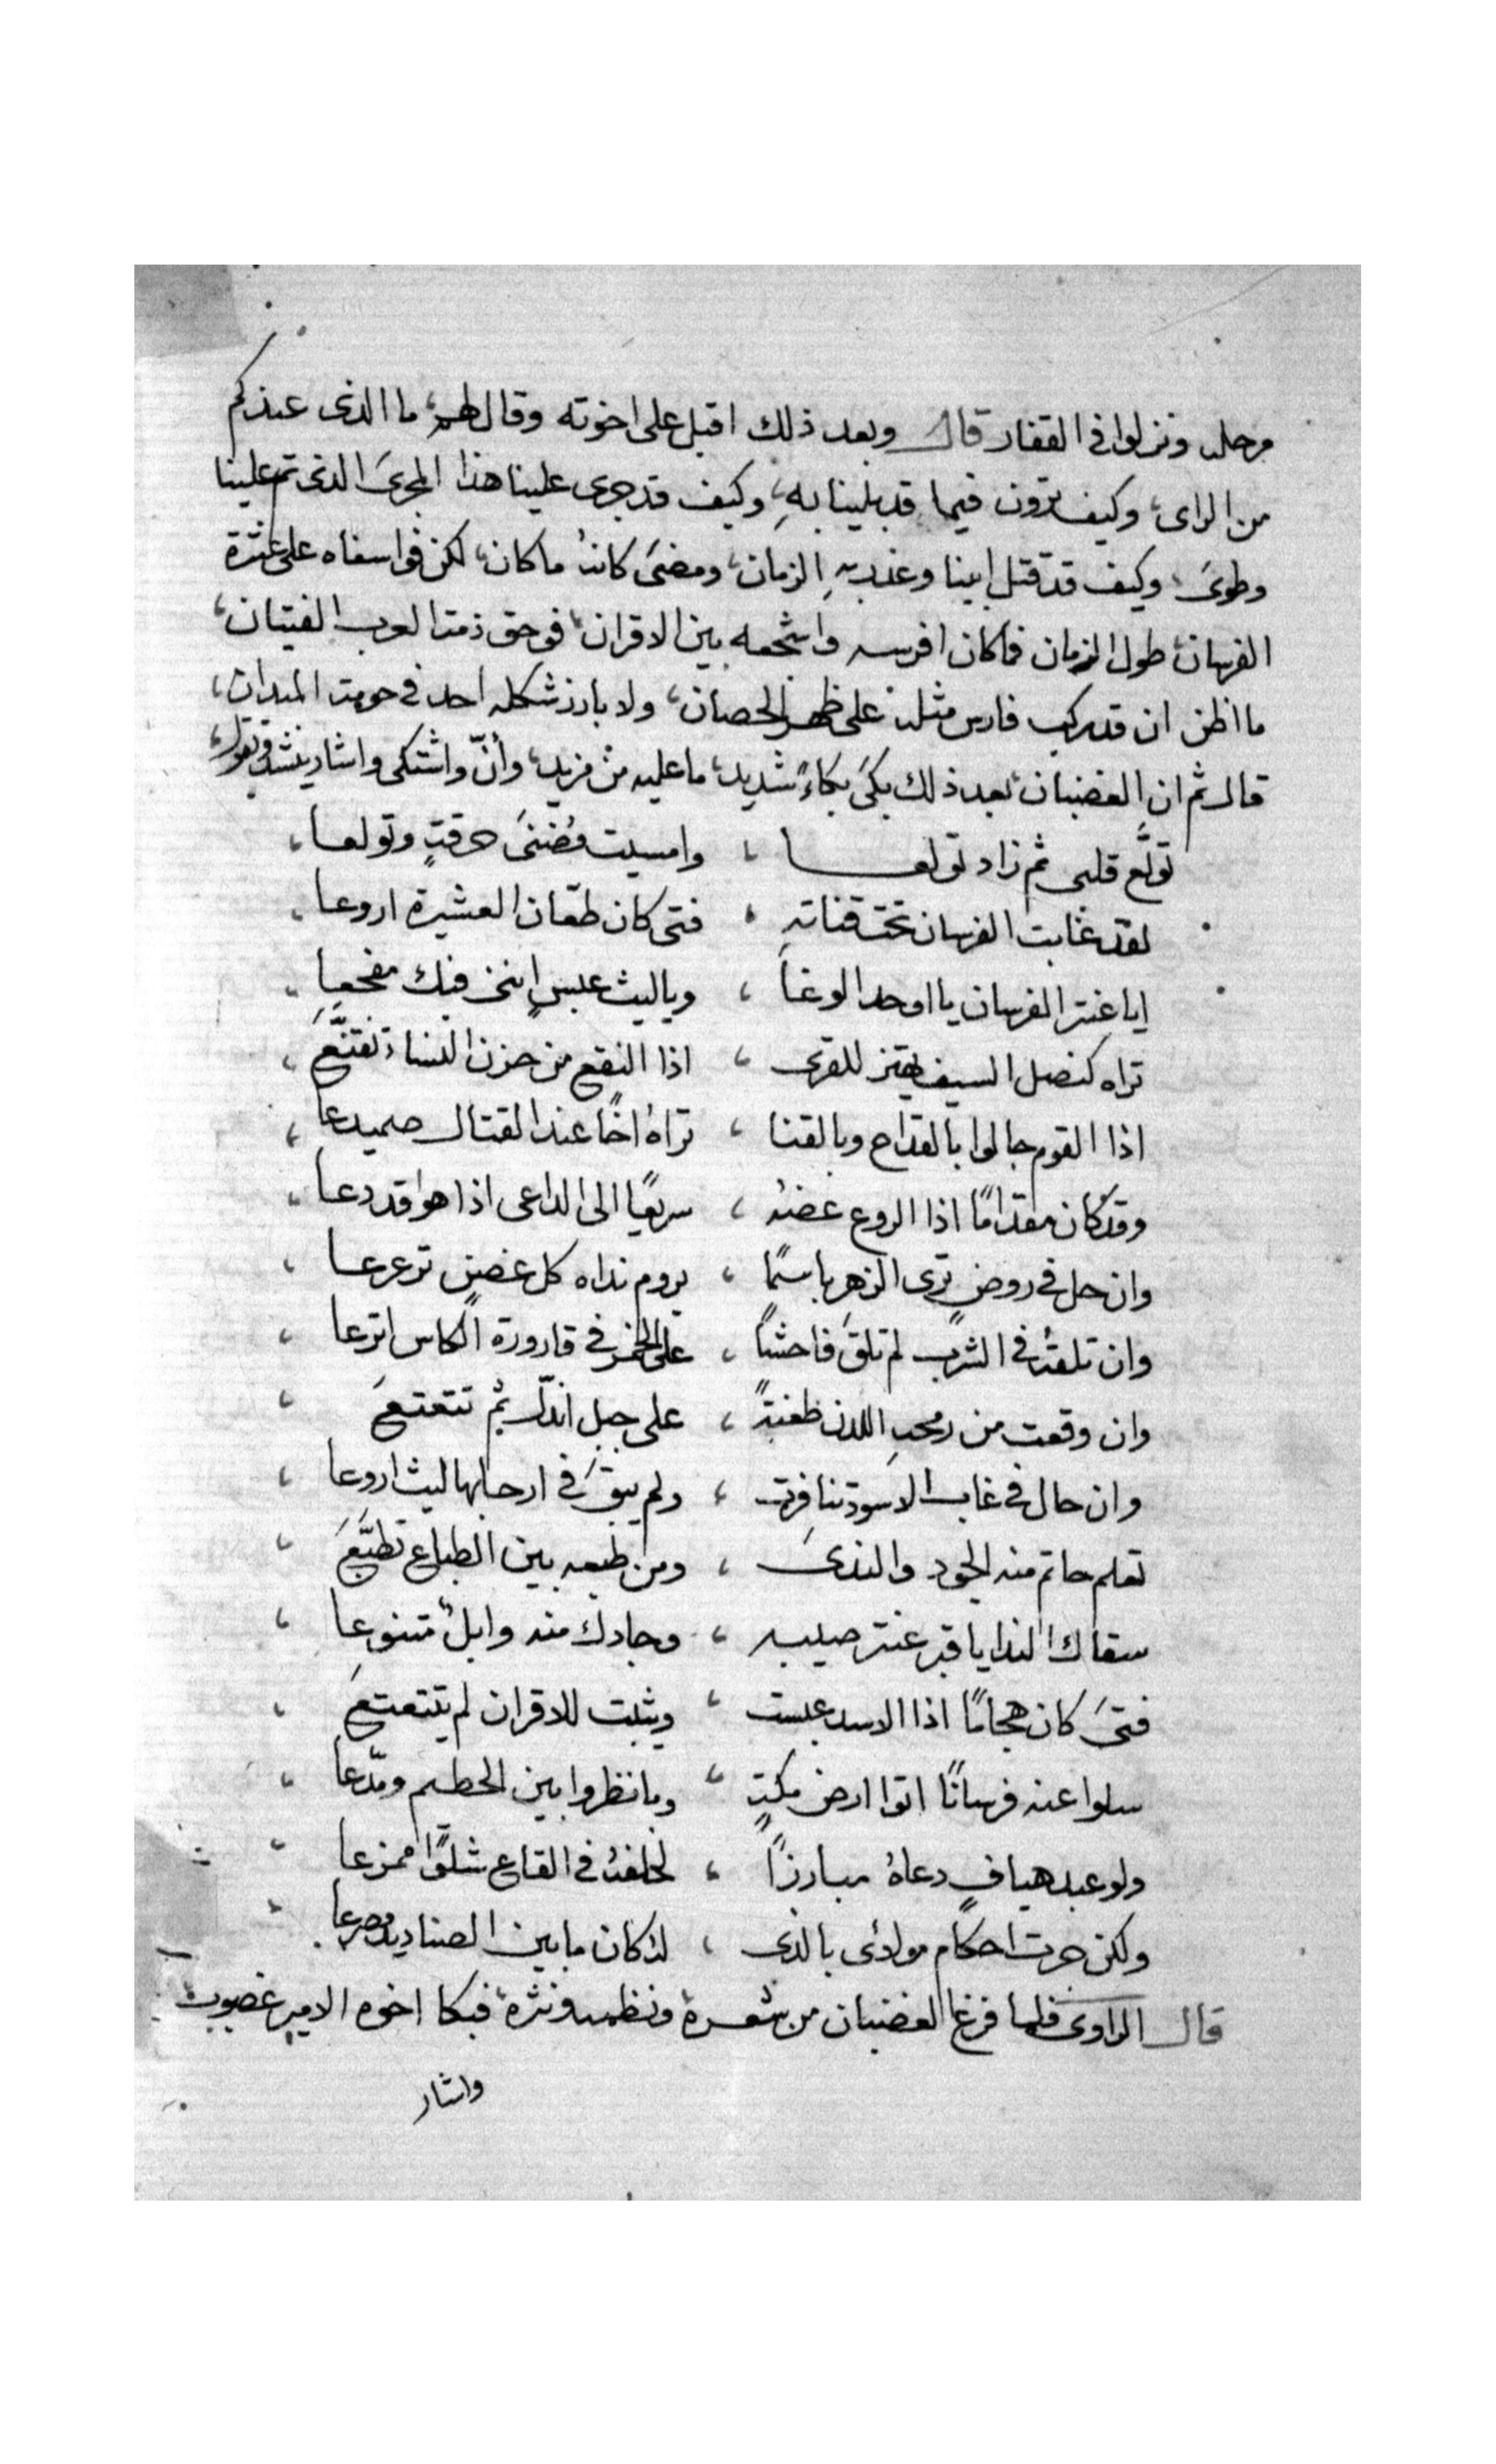 مرحله ونزلوا في القفار قال وبعد ذلك اقبل على اخوته وقال لهم، ما الذى عندكم
من الراى، وكيف ترون فيما قد بلينا بهِ، وكيف قد جرى علينا هذا المجرىَ الذى تم علينا
وطوىَ، وكيف قد قتل ابينا وغدر بهِ الزمان، ومضىَ كانهُ ما كان، لكن فوا سفاه على عنترة
الفرسان، طول الزمان فما كان افرسه واشجعه بين الاقران، فوحق ذمة العرب الفتيان،
ما اظن ان قد ركب فارس مثله على ظهر الحصان، ولا بارز شكله احد في حومة الميدان،
قال ثم ان الغضبان، بعد ذلك بكىَ بكاءً شديد، ما عليه من مزيد، وأنّ واشتكى واشار ينشد ويقول،
تولَّع قلبى ثم زاد تولعا ، وامسيت مُضنىَ حرقةٍ وتولعا،
لقد غابت الفرسان تحت قناتهِ ، فتى كان طعّان العشيرة اروعا،
ايا عنتر الفرسان يا اوحد الوغا ، ويا ليث عبسٍ اننى فيك مفجعا،
تراه كنصل السيف يهتز للقرى ، اذا النقع من حزن النساء تقنَّعَ،
اذا القوم جالوا بالقداح وبالقنا ، تراهُ اخًا عند القتال صميدعا،
وقد كان مقدامًا اذا الروع عضهُ ، سريعًا الى الداعى اذا هو قد دعا،
وان حل في روضٍ ترى الزهر باسمًا ، يروم نداه كل غصنٍ ترعرعا،
وان تلقهُ في الشرب لم تلقَ فاحشًا ، على الخمر في قارورة الكاس اترعا،
وان وقعت من رمحهِ اللدن طعنةً ، على جبلٍ اندكّ ثم تتعتعَ،
وان حال في غاب الاسود تنافرت ، ولم يبقَ في ارجايها ليث اروعا،
تعلم حاتم منه الجود والندىَ ، ومن طبعه بين الطباع تطبَّعَ،
سقاك الندا يا قبر عنتر صيبه ، وجادك منه وابلٌ متنوعا،
فتىَ كان هجامًا اذا الاسد عبست ، ويثبت للاقران لم يتتعتعَ،
سلوا عنه فرسانًا اتوا ارض مكةٍ ، وما نظروا بين الحطيم ومدّعا،
ولو عبد هيافٍ دعاهُ مبارزًا ، لخلفهُ في القاع شلوًا ممزعا،
ولكن جرت احكام مولاى بالذى ، لذ كان ما بين الصناديد مصرعا،
قال الراوى فلما فرغ الغضبان من شعره ونظمه ونثره، فبكا اخوه الامير غصوب
واشار